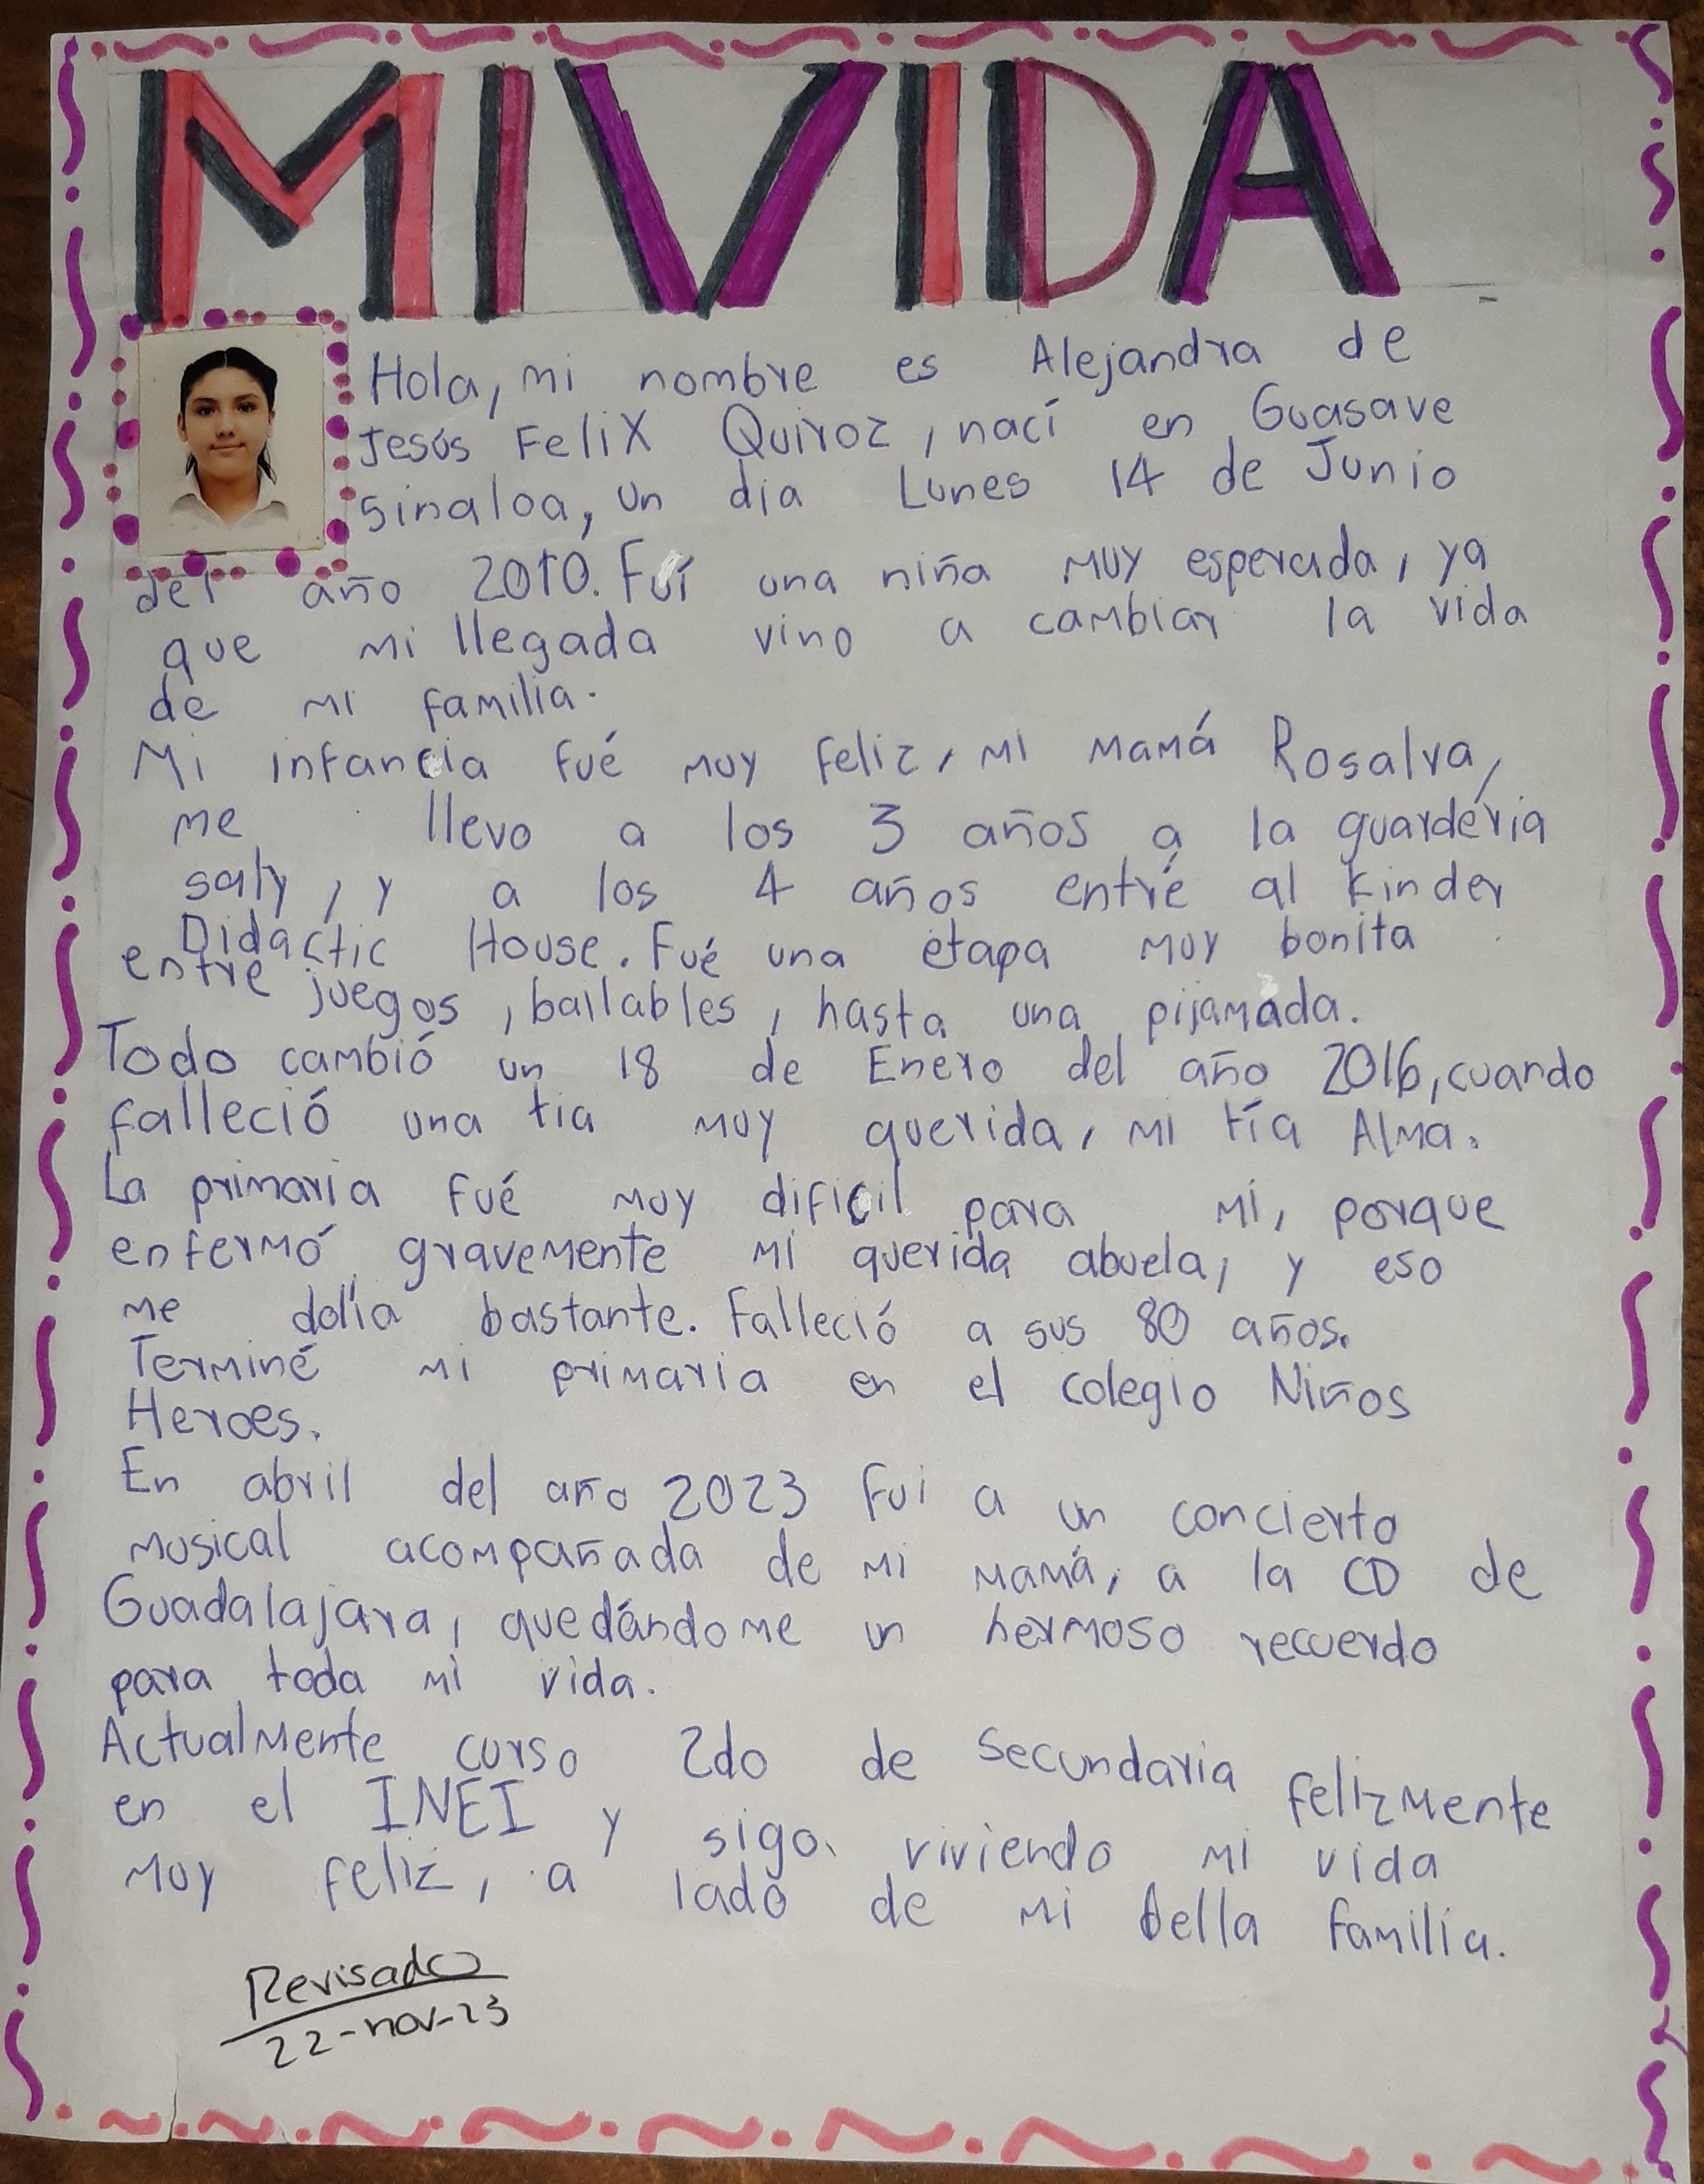 MI VIDA
Hola, mi nombre es Alejandra de
Jesús Felix Quiroz, nací en Guasave
Sinaloa, un dia Lunes 14 de Junio
del año 2010. Fuí una niña muy esperada, ya
que mi llegada vino a cambiar la vida
de mi familia.
Mi infancia fué muy feliz, mi mamá Rosalva,
me llevo a los 3 años a la guardería
saly, y a los 4 años entré al kinder
Didactic House. Fué una etapa muy bonita
entre juegos, bailables, hasta una pijamada.
Todo cambió un 18 de Enero del año 2016, cuando
falleció una tia muy querida, mi tía Alma.
La primaria fué muy dificil para mí, porque
enfermó gravemente mi querida abuela, y eso
me dolía bastante. Falleció a sus 80 años.
Terminé mi primaria en el colegio Niños
Heroes.
En abril del año 2023 fui a un concierto
musical acompañada de mi mamá, a la CD de
Guadalajara, quedándome un hermoso recuerdo
para toda mi vida.
Actualmente curso 2do de secundaria felizmente
en el INEI y sigo viviendo mi vida
muy feliz, a lado de mi bella familia.
Revisado
22-nov-23